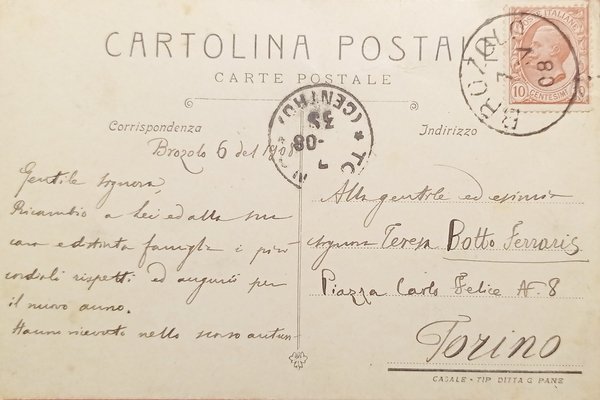 CARTOLINA POSTAL
CARTE POSTALE
POSTE ITALIANE
10 CENTESIMI 10
BROZOLO
08
TO (CENTRO)
08
Corrispondenza
Indirizzo
Brozolo 6 del 1908
Gentile Signora,
Ricambio a Lei ed alla sua
cara e distinta famiglia i più
cordiali rispetti ed augurii per
il nuovo anno.
Hanno ricevuto nello scorso autun-
Alla gentile ed esimia
Signora Teresa Botto Ferraris
Piazza Carlo Felice N. 8
Torino
CASALE - TIP DITTA G PANE